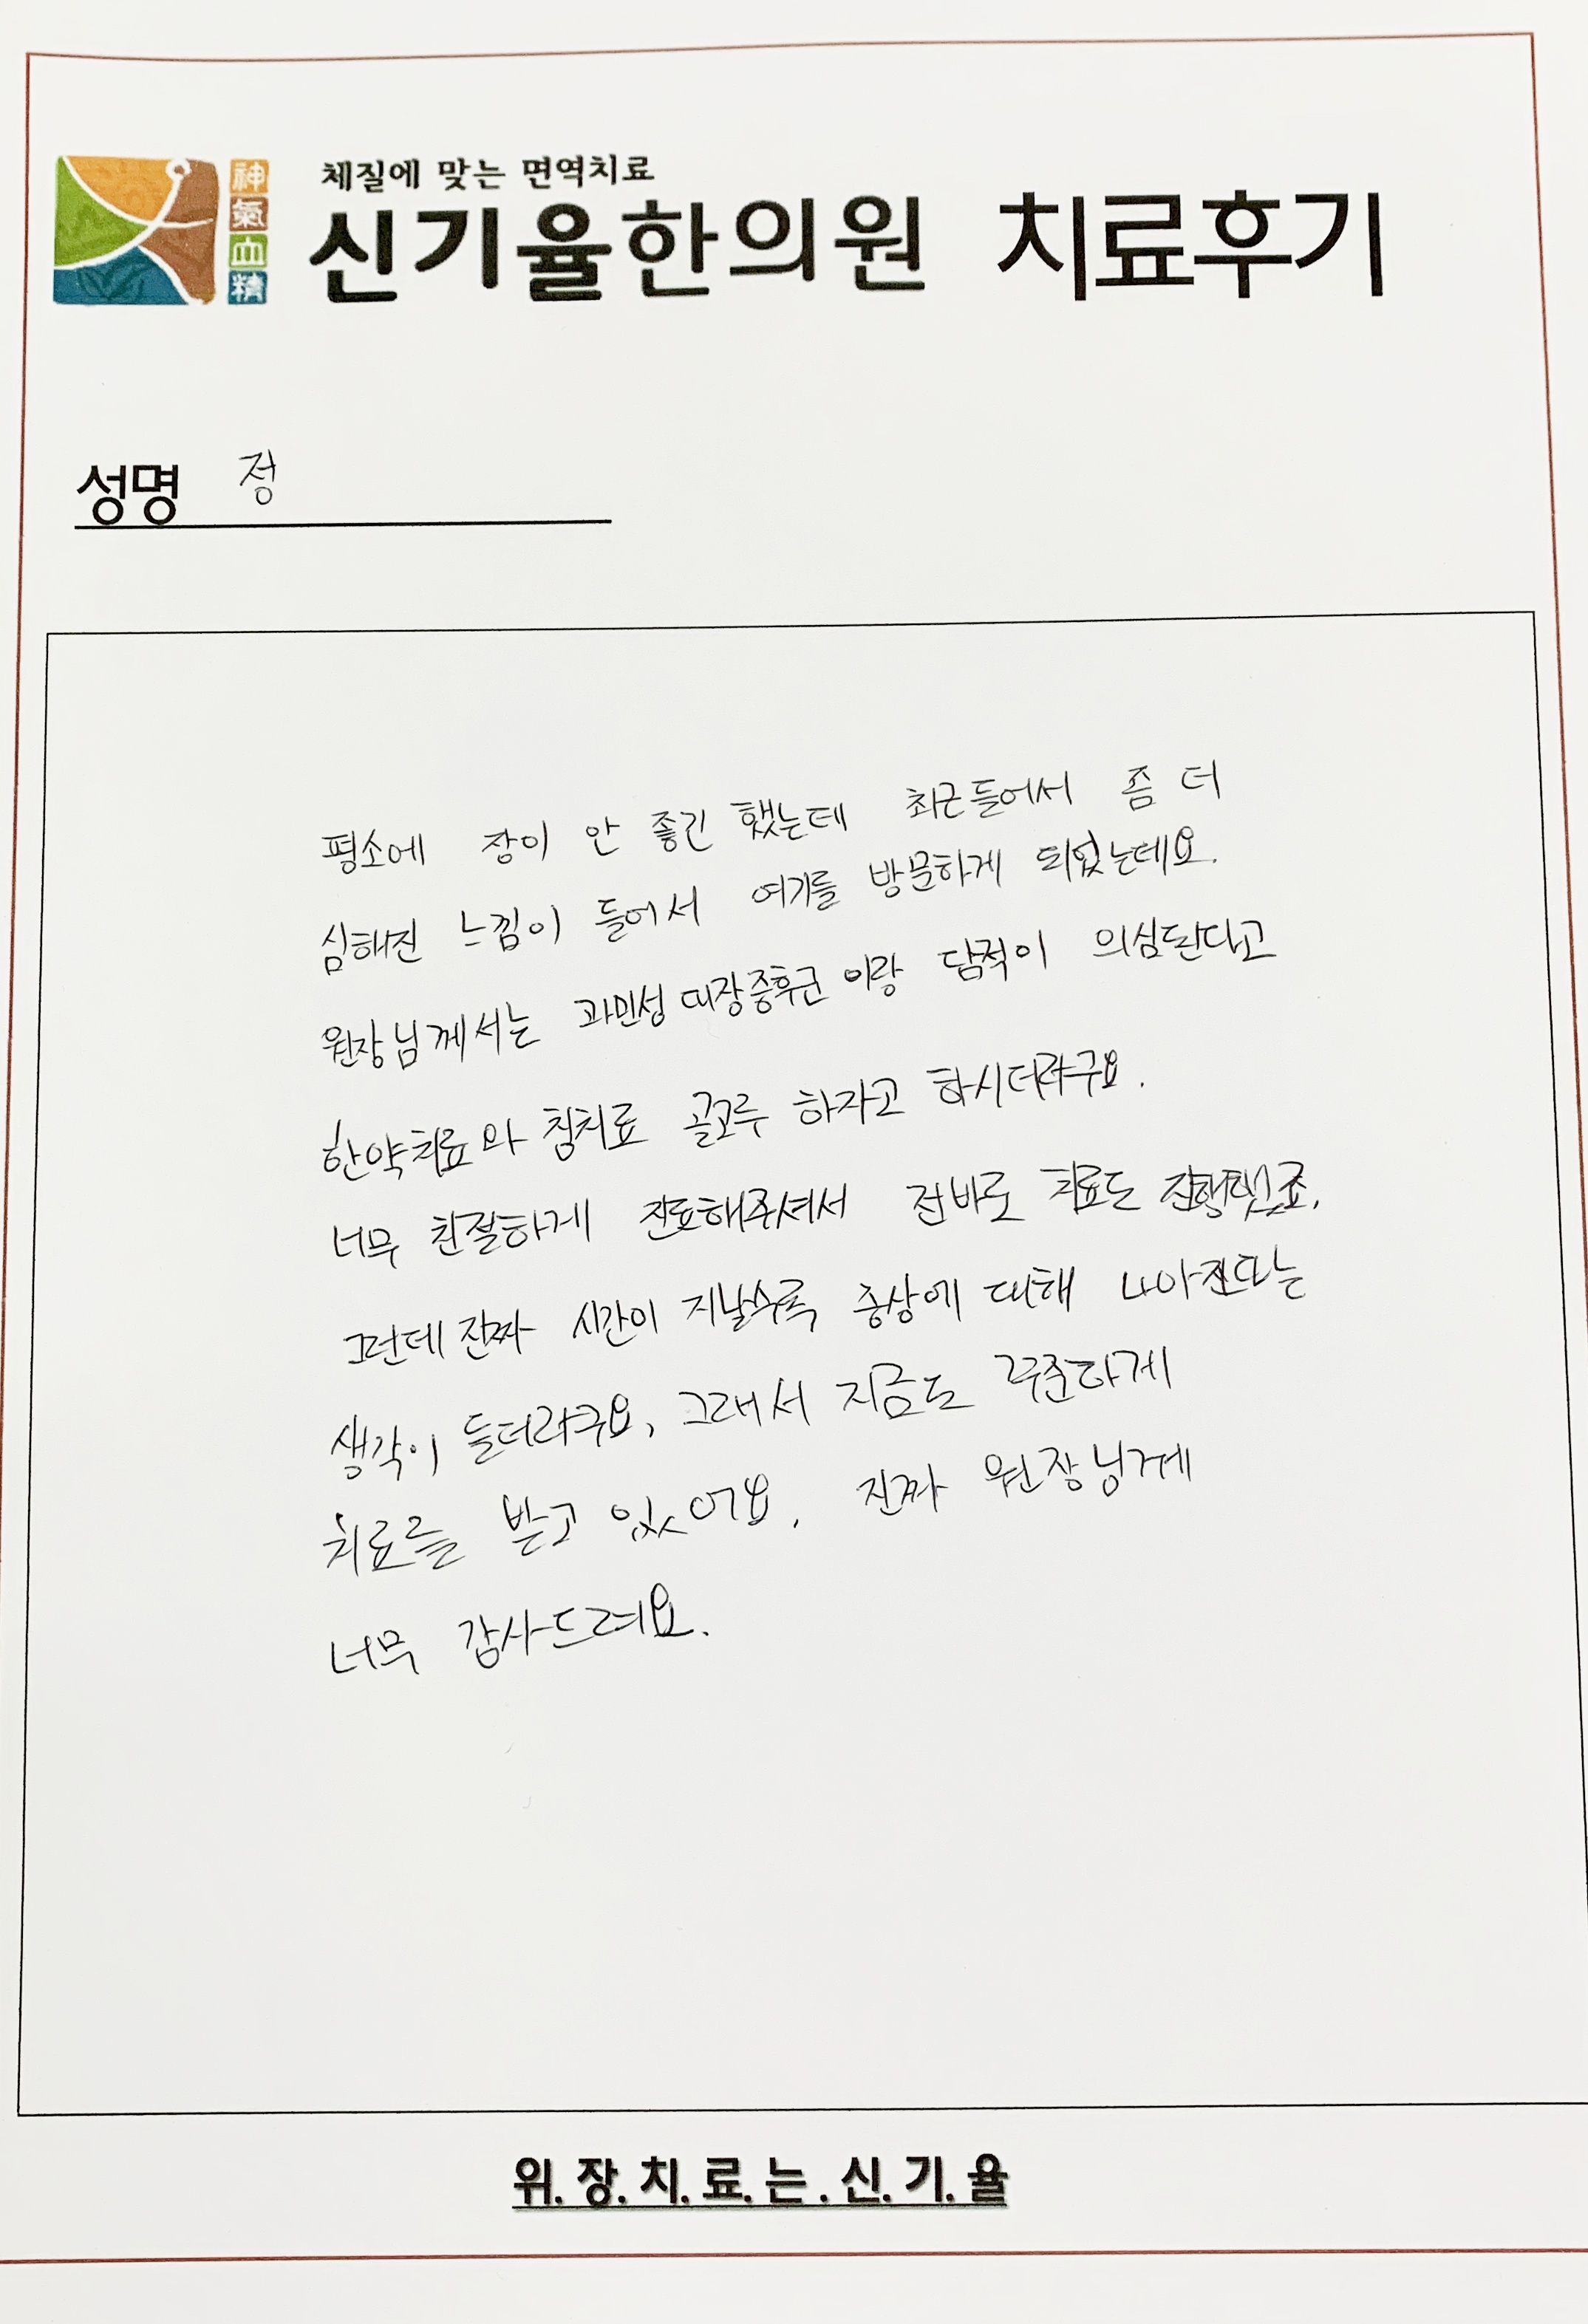 체질에 맞는 면역치료
神氣血精
신기율한의원 치료후기
성명 정
평소에 장이 안 좋긴 했는데 최근들어서 좀 더
심해진 느낌이 들어서 여기를 방문하게 되었는데요.
원장님께서는 과민성 대장증후군 이랑 담적이 의심된다고
한약치료와 침치료 골고루 하자고 하시더라구요.
너무 친절하게 진료해주셔서 전바로 치료도 진행했죠.
그런데 진짜 시간이 지날수록 증상에 대해 나아진다는
생각이 들더라구요, 그래서 지금도 꾸준하게
치료를 받고 있어요, 진짜 원장님게
너무 감사드려요.
위.장.치.료.는.신.기.율